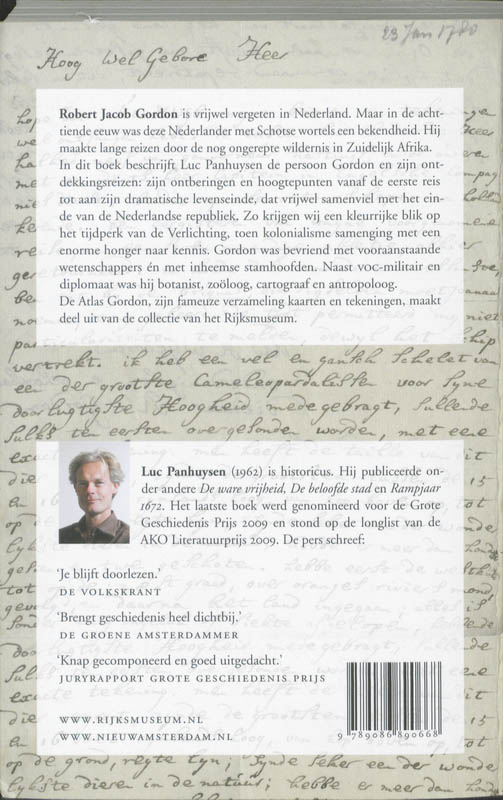 23 Jan 1780
Hoog Wel Gebore Heer
Robert Jacob Gordon is vrijwel vergeten in Nederland. Maar in de acht-
tiende eeuw was deze Nederlander met Schotse wortels een bekendheid. Hij
maakte lange reizen door de nog ongerepte wildernis in Zuidelijk Afrika.
In dit boek beschrijft Luc Panhuysen de persoon Gordon en zijn ont-
dekkingsreizen: zijn ontberingen en hoogtepunten vanaf de eerste reis
tot aan zijn dramatische levenseinde, dat vrijwel samenviel met het ein-
de van de Nederlandse republiek. Zo krijgen wij een kleurrijke blik op
het tijdperk van de Verlichting, toen kolonialisme samenging met een
enorme honger naar kennis. Gordon was bevriend met vooraanstaande
wetenschappers én met inheemse stamhoofden. Naast VOC-militair en
diplomaat was hij botanist, zoöloog, cartograaf en antropoloog.
De Atlas Gordon, zijn fameuze verzameling kaarten en tekeningen, maakt
deel uit van de collectie van het Rijksmuseum.
vertrekt. ik heb een vel en gankh Schelet van
een der grootste Cameleopardalissen voor Syne
doorlugtigste Hoogheid medegebragt, Sullende
Sulks ten eersten overgesonden worden, met eene
Luc Panhuysen (1962) is historicus. Hij publiceerde on-
der andere De ware vrijheid, De beloofde stad en Rampjaar
1672. Het laatste boek werd genomineerd voor de Grote
Geschiedenis Prijs 2009 en stond op de longlist van de
AKO Literatuurprijs 2009. De pers schreef:
'Je blijft doorlezen.'
DE VOLKSKRANT
'Brengt geschiedenis heel dichtbij.'
DE GROENE AMSTERDAMMER
'Knap gecomponeerd en goed uitgedacht.'
JURYRAPPORT GROTE GESCHIEDENIS PRIJS
WWW.RIJKSMUSEUM.NL
WWW.NIEUWAMSTERDAM.NL
9 789086 890668
op de grond, regte lyn; Synde Seker een der wonde
lykste dieren in de natuur; hebbe er meer dan honde